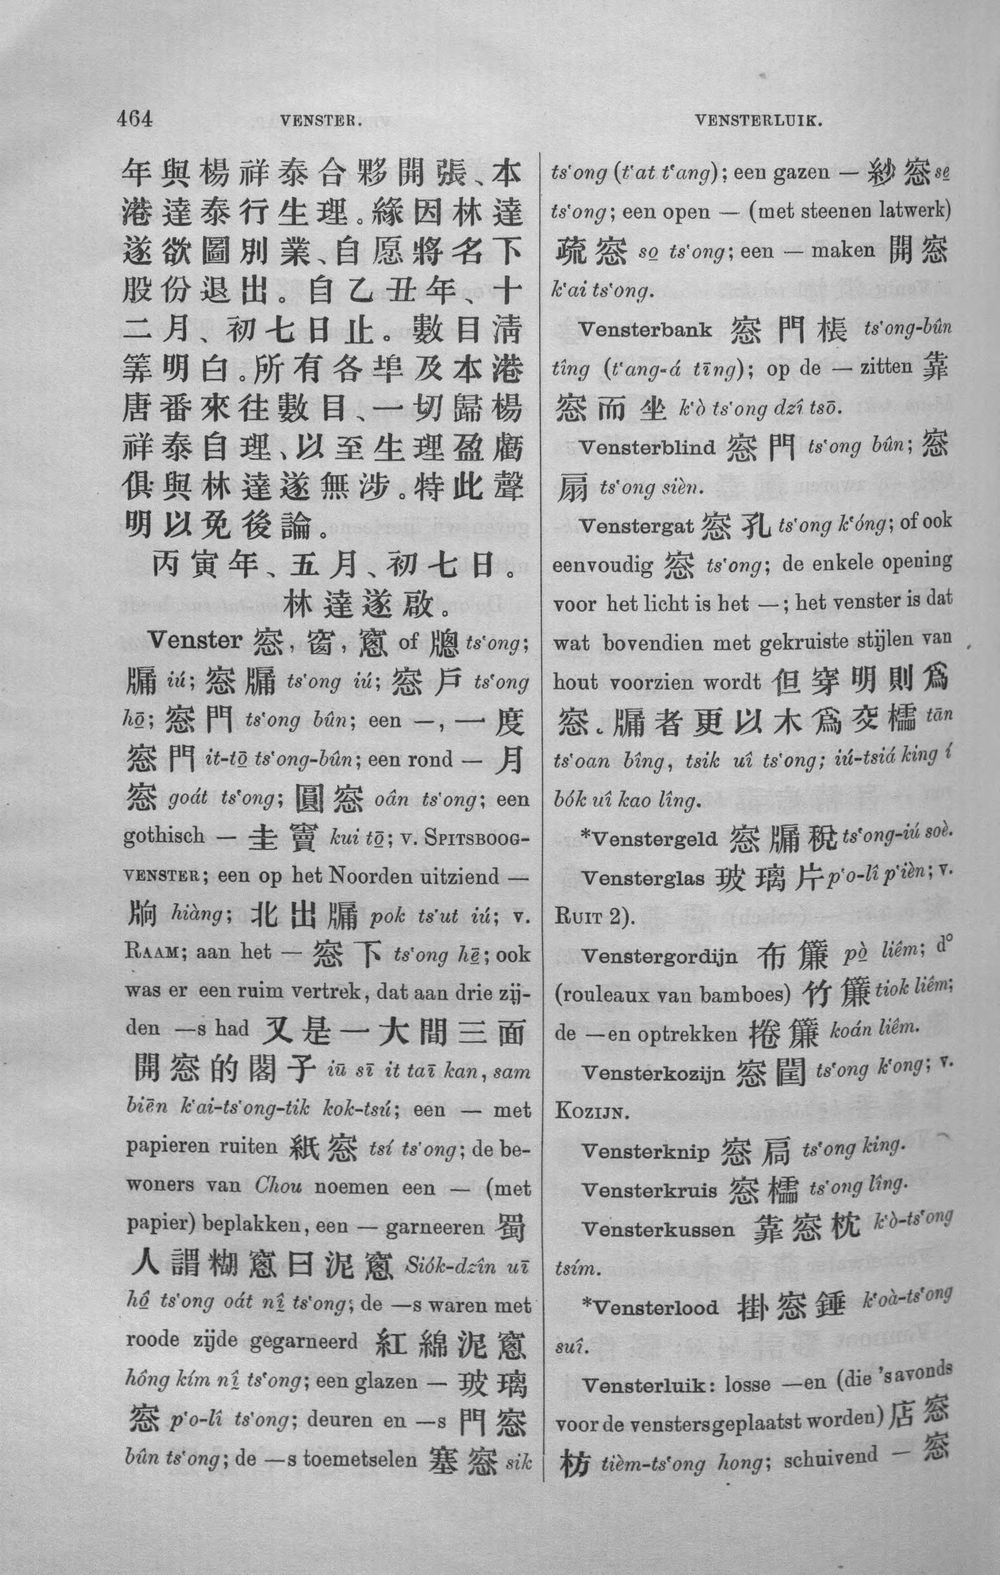 464 VENSTER. VENSTERLUIK.
年與楊祥泰合夥開張、本
港達泰行生理。緣因林達
遂欲圖別業、自愿將名下
股份退出。自乙丑年、十
二月、初七日止。數目淸
筭明白。所有各埠及本港
唐番來往數目、一切歸楊
祥泰自理、以至生理盈虧
俱與林達遂無涉。特此聲
明以免後論。
丙寅年、五月、初七日。
林達遂啟。
Venster 窓, 窗, 窻 of 牎 ts‘ong;
牖 iú; 窓牖 ts‘ong iú; 窓戶 ts‘ong
hō; 窓門 ts‘ong bûn; een —, 一度
窓門 it-tō ts‘ong-bûn; een rond — 月
窓 goát ts‘ong; 圓窓 oân ts‘ong; een
gothisch — 圭竇 kui tō; v. SPITSBOOG-
VENSTER; een op het Noorden uitziend —
牎 hiàng; 北出牖 pok ts‘ut iú; v.
RAAM; aan het — 窓下 ts‘ong hē; ook
was er een ruim vertrek, dat aan drie zij-
den —s had 又是一大間三面
開窓的閣子 iū sī it taī kan, sam
biēn k‘ai-ts‘ong-tik kok-tsú; een — met
papieren ruiten 紙窓 tsí ts‘ong; de be-
woners van Chou noemen een — (met
papier) beplakken, een — garneeren 蜀
人謂糊窻曰泥窻 Siók-dzîn uī
hô ts‘ong oát nî ts‘ong; de —s waren met
roode zijde gegarneerd 紅綿泥窻
hông kím nî ts‘ong; een glazen — 玻璃
窓 p‘o-lî ts‘ong; deuren en —s 門窓
bûn ts‘ong; de —s toemetselen 塞窓 sik
ts‘ong (t‘at t‘ang); een gazen — 紗窓 se
ts‘ong; een open — (met steenen latwerk)
疏窓 so ts‘ong; een — maken 開窓
k‘ai ts‘ong.
Vensterbank 窓門棖 ts‘ong-bûn
tîng (t‘ang-á tīng); op de — zitten 靠
窓而坐 k‘ò ts‘ong dzî tsō.
Vensterblind 窓門 ts‘ong bûn; 窓
扇 ts‘ong sièn.
Venstergat 窓孔 ts‘ong k‘óng; of ook
eenvoudig 窓 ts‘ong; de enkele opening
voor het licht is het —; het venster is dat
wat bovendien met gekruiste stijlen van
hout voorzien wordt 但穿明則爲
窓。牖者更以木爲交櫺 tān
ts‘oan bîng, tsik uî ts‘ong; iú-tsiá kìng í
bók uî kao lîng.
*Venstergeld 窓牖稅 ts‘ong-iú soè.
Vensterglas 玻璃片 p‘o-lî p‘ièn; v.
RUIT 2).
Venstergordijn 布簾 pò liêm; d°
(rouleaux van bamboes) 竹簾 tiok liêm;
de —en optrekken 捲簾 koán liêm.
Vensterkozijn 窓閫 ts‘ong k‘ong; v.
KOZIJN.
Vensterknip 窓扃 ts‘ong king.
Vensterkruis 窓櫺 ts‘ong lîng.
Vensterkussen 靠窓枕 k‘ò-ts‘ong
tsím.
*Vensterlood 掛窓錘 k‘oà-ts‘ong
suî.
Vensterluik: losse —en (die 's avonds
voor de vensters geplaatst worden) 店窓
枋 tièm-ts‘ong hong; schuivend — 窓